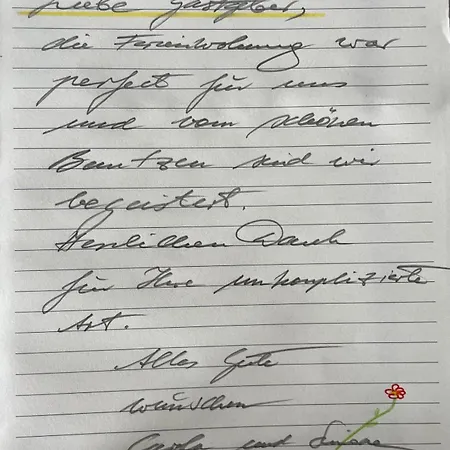 Liebe Gastgeber,
die Ferienwohnung war
perfect für uns
und vom schönen
Bautzen sind wir
begeistert.
Herzlichen Dank
für Ihre unkomplizierte
Art.
Alles Gute
wünschen
Carola und Simone